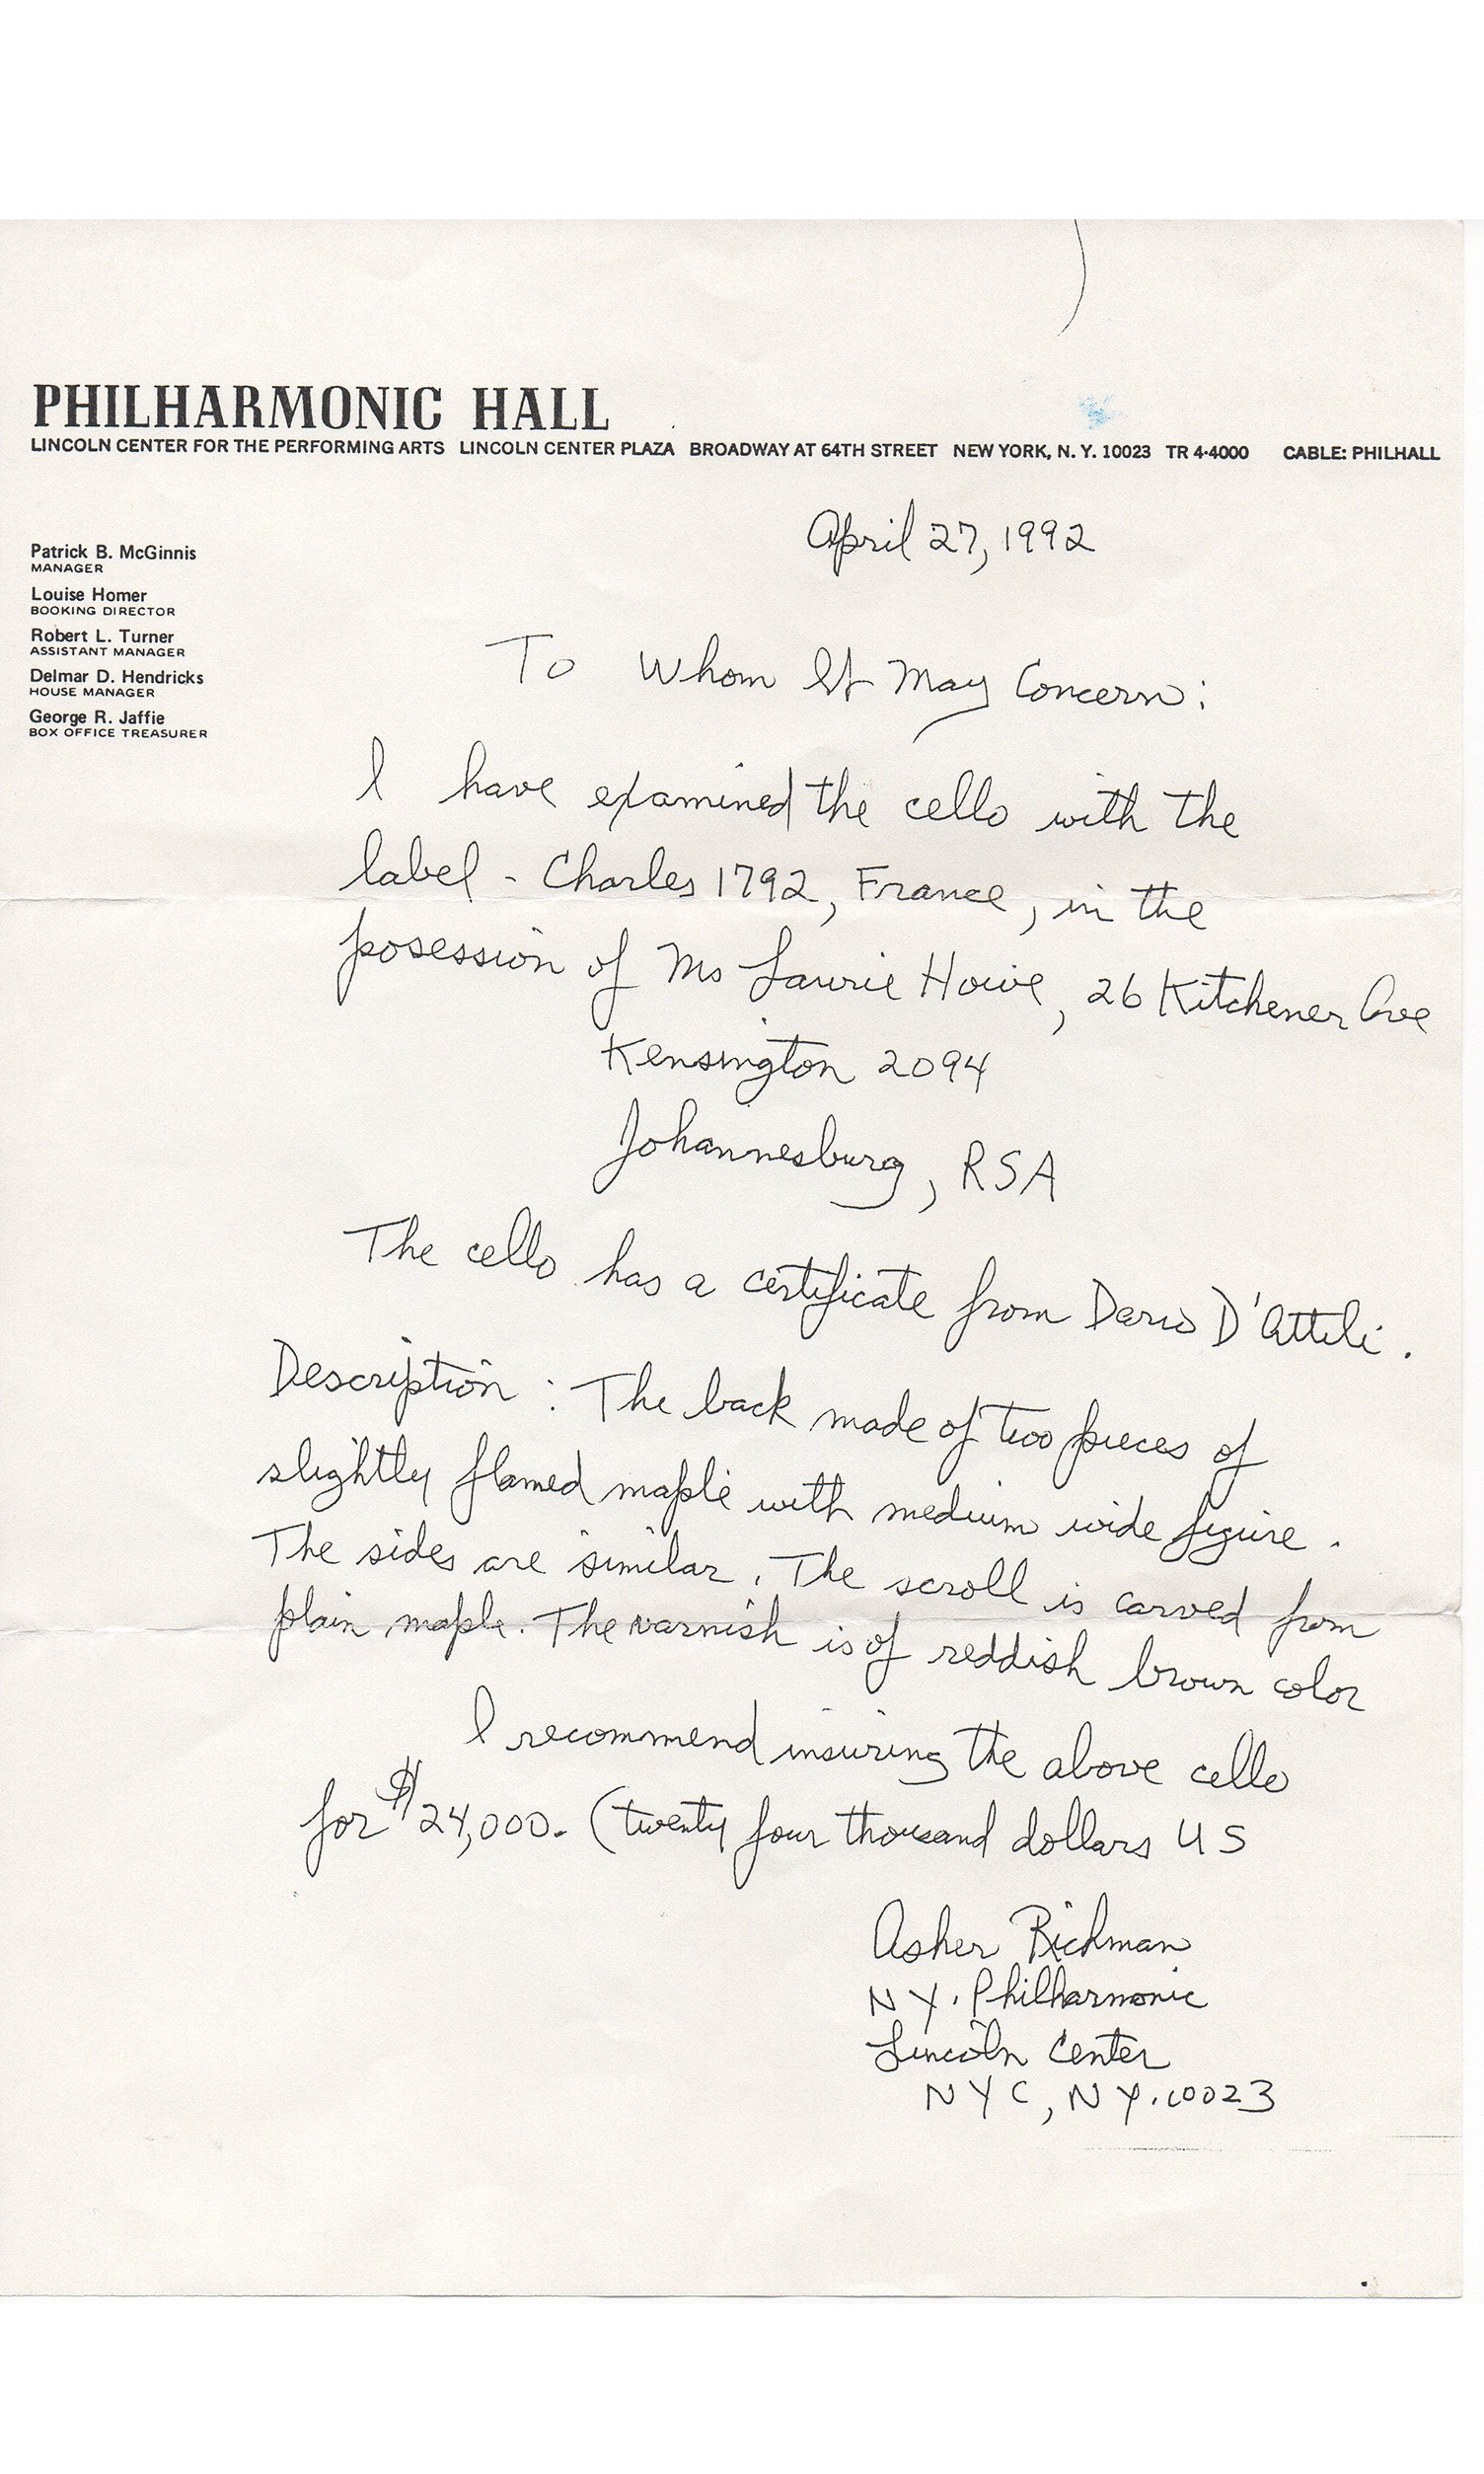 PHILHARMONIC HALL
LINCOLN CENTER FOR THE PERFORMING ARTS LINCOLN CENTER PLAZA BROADWAY AT 64TH STREET NEW YORK, N. Y. 10023 TR 4-4000 CABLE: PHILHALL
April 27, 1992
Patrick B. McGinnis
MANAGER
Louise Homer
BOOKING DIRECTOR
Robert L. Turner
ASSISTANT MANAGER
Delmar D. Hendricks
HOUSE MANAGER
George R. Jaffie
BOX OFFICE TREASURER
To Whom It May Concern:
I have examined the cello with the
label - Charles 1792, France, in the
posession of Ms Laurie Howe, 26 Kitchener Ave
Kensington 2094
Johannesburg, RSA
The cello has a certificate from Dario D'Attili.
Description: The back made of two pieces of
slightly flamed maple with medium wide figure.
The sides are similar. The scroll is carved from
plain maple. The varnish is of reddish brown color
I recommend insuring the above cello
for $24,000. (twenty four thousand dollars US
Asher Richman
NY. Philharmonic
Lincoln Center
NYC, NY. 10023